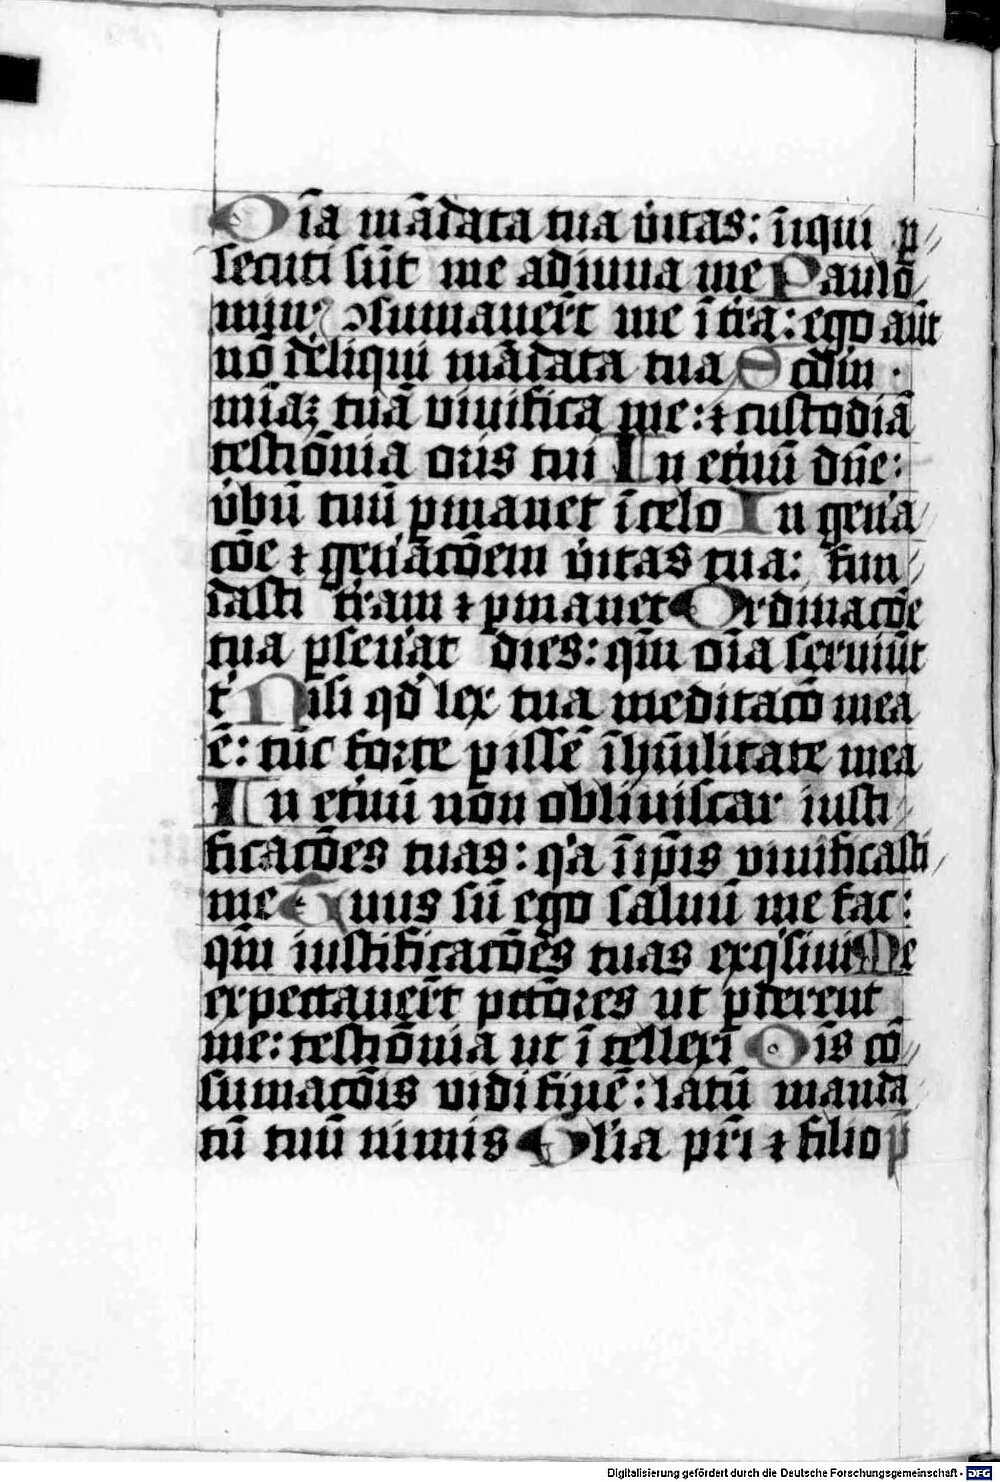 Oīa mādata tua ùitas: īiqui p̱
secuti sūt me adiuua me Paulo
min⁹ ꝯsumauer̄t me ī tr̄a: ego aūt
nō dèliqui mādata tua Scd̄m
mīaꝫ tuā viuifica me: ⁊ custodiā
testiōnia oris tui In et̄nū dn̄e:
ùbū tuū ꝑmanet ī celo In gen̓a
cōe ⁊ gen̓acōem ùitas tua: fun
dasti tr̄am ⁊ ꝑmanet Ordinacōe
tua ꝑseu̓at dies: qm̄ oīa seruiūt
t̓ Nisi qd̓ lex tua meditacō mea
ē: tūc forte ꝑissē ī hūilitate mea
In et̄nū non obliuiscar iusti
ficacōes tuas: q̓a ī ip̄is viuificasti
me Tuus sū ego saluū me fac:
qm̄ iustificacōes tuas exq̓siui Me
expectauer̄t pctōres ut ꝑderent
me: testiōnia ut ītellexi Oīs cō
sumacōis vidi finē: latū manda
tū tuū nimis Gl̓ia pr̄i ⁊ filio p̄
Digitalisierung gefördert durch die Deutsche Forschungsgemeinschaft - DFG